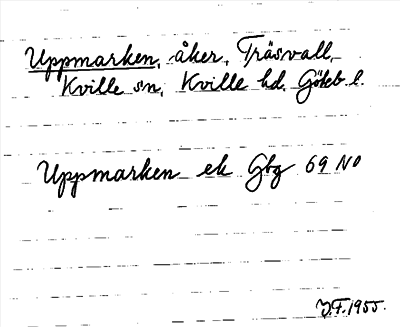 Uppmarken, åker, Träsvall,
Kville sn, Kville hd, Göteb. l.
Uppmarken ek Gbg 69 NO
J.F. 1955.